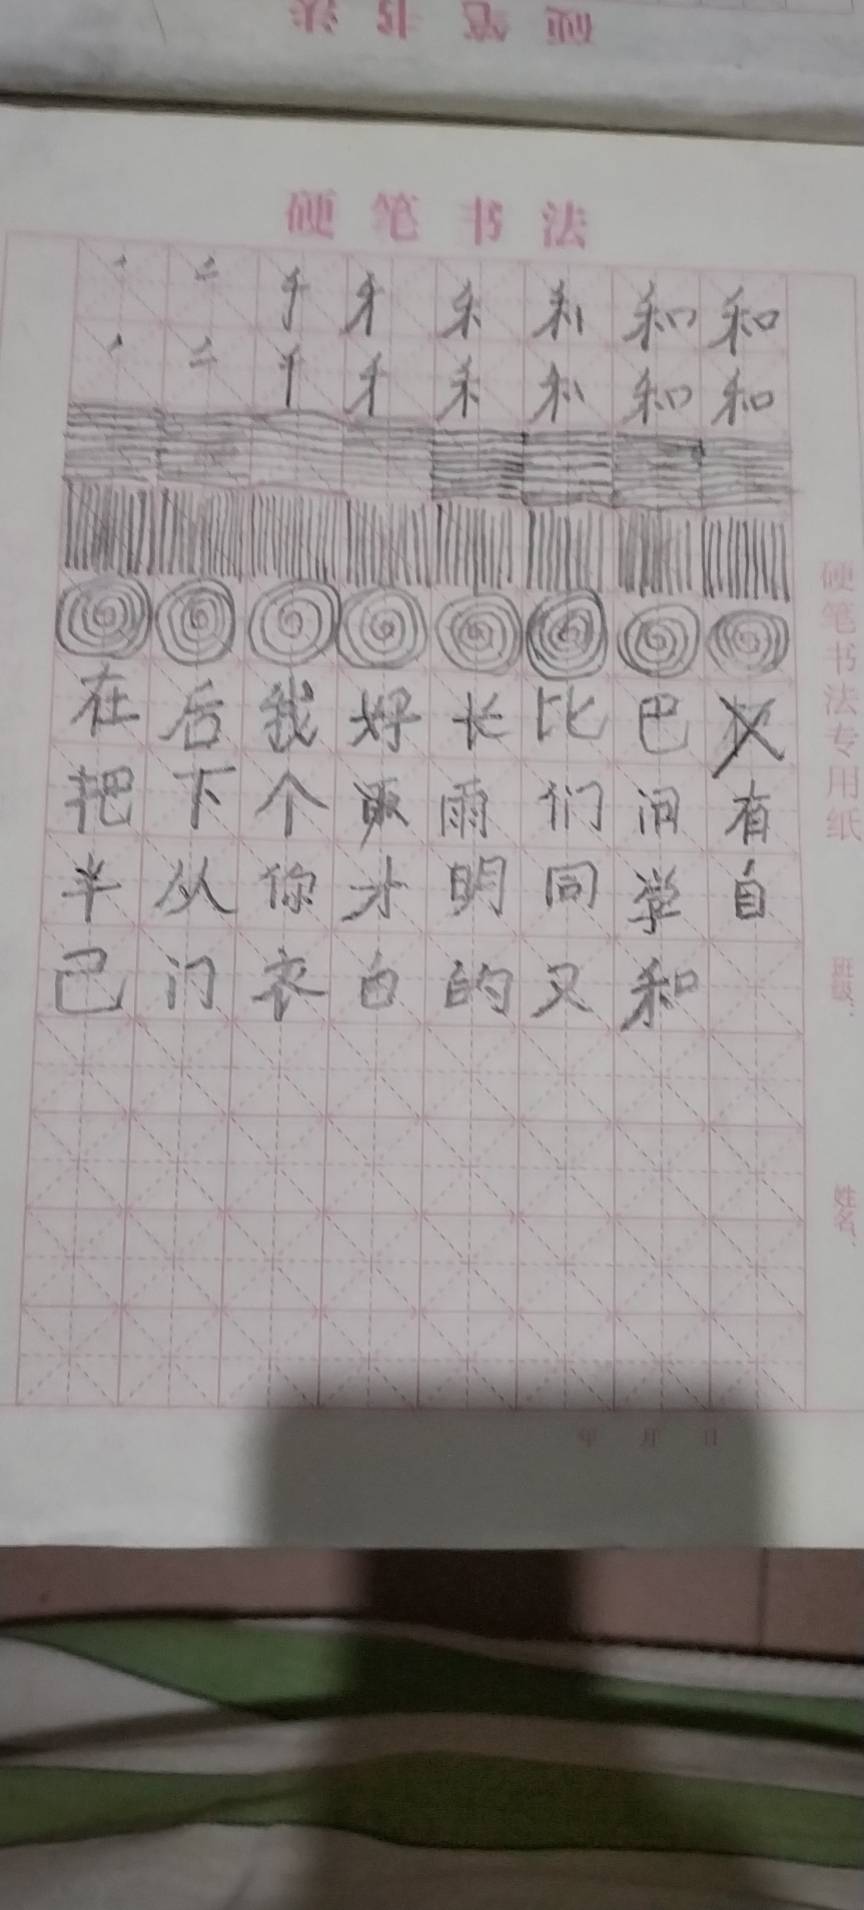 硬笔书法
硬笔书法
一 二 千 禾 禾 和 和
千 禾 和 和
在后我好长比巴
把下个取雨们问有
半从你才明同学自
己门衣白的又和
硬笔书法专用纸
班级：
姓名：
年 月 日